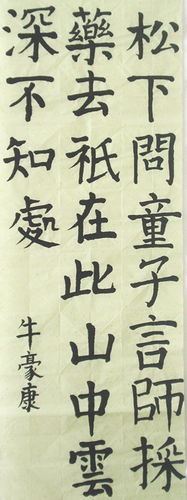 松下問童子言師採
藥去祇在此山中雲
深不知處
牛豪康